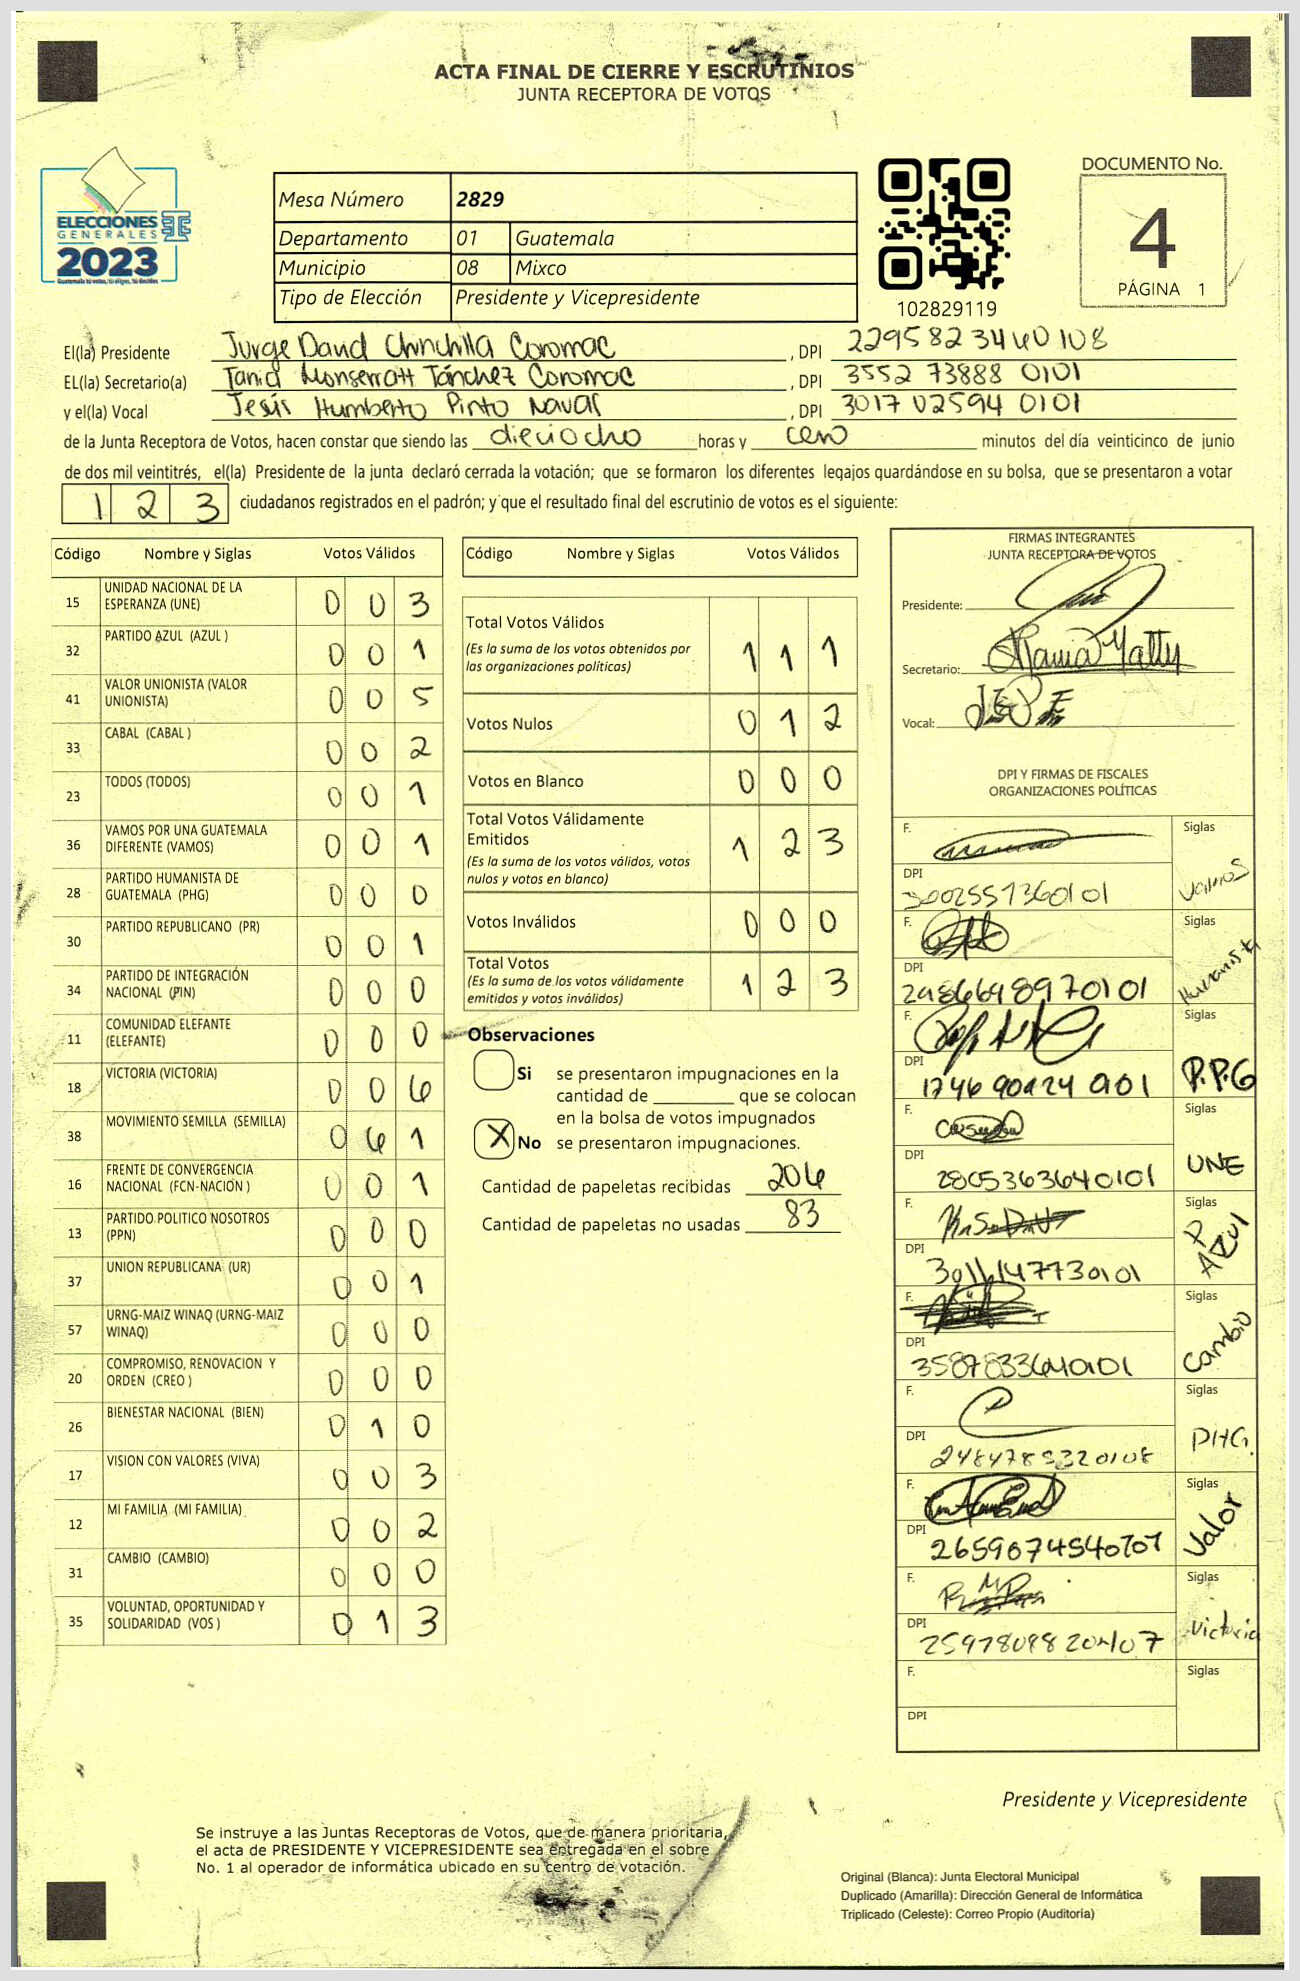 ACTA FINAL DE CIERRE Y ESCRUTINIOS
JUNTA RECEPTORA DE VOTOS
ELECCIONES
GENERALES
2023
Mesa Número 2829
Departamento 01 Guatemala
Municipio 08 Mixco
Tipo de Elección Presidente y Vicepresidente
102829119
DOCUMENTO No.
4
PÁGINA 1
El(la) Presidente Jorge David Chinchilla Coromac, DPI 2295823440108
EL(la) Secretario(a) Tania Monserratt Tánchez Coromac, DPI 3552 73888 0101
y el(la) Vocal Jesús Humberto Pinto Navas, DPI 3017 02594 0101
de la Junta Receptora de Votos, hacen constar que siendo las dieciocho horas y cero minutos del día veinticinco de junio
de dos mil veintitrés, el(la) Presidente de la junta declaró cerrada la votación; que se formaron los diferentes legajos guardándose en su bolsa, que se presentaron a votar
1 2 3 ciudadanos registrados en el padrón; y que el resultado final del escrutinio de votos es el siguiente:
Código Nombre y Siglas Votos Válidos
15 UNIDAD NACIONAL DE LA ESPERANZA (UNE) 0 0 3
32 PARTIDO AZUL (AZUL ) 0 0 1
41 VALOR UNIONISTA (VALOR UNIONISTA) 0 0 5
33 CABAL (CABAL ) 0 0 2
23 TODOS (TODOS) 0 0 1
36 VAMOS POR UNA GUATEMALA DIFERENTE (VAMOS) 0 0 1
28 PARTIDO HUMANISTA DE GUATEMALA (PHG) 0 0 0
30 PARTIDO REPUBLICANO (PR) 0 0 1
34 PARTIDO DE INTEGRACIÓN NACIONAL (PIN) 0 0 0
11 COMUNIDAD ELEFANTE (ELEFANTE) 0 0 0
18 VICTORIA (VICTORIA) 0 0 6
38 MOVIMIENTO SEMILLA (SEMILLA) 0 6 1
16 FRENTE DE CONVERGENCIA NACIONAL (FCN-NACION ) 0 0 1
13 PARTIDO POLITICO NOSOTROS (PPN) 0 0 0
37 UNION REPUBLICANA (UR) 0 0 1
57 URNG-MAIZ WINAQ (URNG-MAIZ WINAQ) 0 0 0
20 COMPROMISO, RENOVACION Y ORDEN (CREO ) 0 0 0
26 BIENESTAR NACIONAL (BIEN) 0 1 0
17 VISION CON VALORES (VIVA) 0 0 3
12 MI FAMILIA (MI FAMILIA) 0 0 2
31 CAMBIO (CAMBIO) 0 0 0
35 VOLUNTAD, OPORTUNIDAD Y SOLIDARIDAD (VOS ) 0 1 3
Código Nombre y Siglas Votos Válidos
Total Votos Válidos 1 1 1
(Es la suma de los votos obtenidos por
las organizaciones políticas)
Votos Nulos 0 1 2
Votos en Blanco 0 0 0
Total Votos Válidamente
Emitidos 1 2 3
(Es la suma de los votos válidos, votos
nulos y votos en blanco)
Votos Inválidos 0 0 0
Total Votos 1 2 3
(Es la suma de los votos válidamente
emitidos y votos inválidos)
Observaciones
Si se presentaron impugnaciones en la
cantidad de ________ que se colocan
en la bolsa de votos impugnados
X No se presentaron impugnaciones.
Cantidad de papeletas recibidas 206
Cantidad de papeletas no usadas 83
FIRMAS INTEGRANTES
JUNTA RECEPTORA DE VOTOS
Presidente:
Secretario:
Vocal:
DPI Y FIRMAS DE FISCALES
ORGANIZACIONES POLÍTICAS
F. Siglas Vamos
DPI 3002551360101
F. Siglas Humanista
DPI 2986648970101
F. Siglas P.P.G
DPI
F. Siglas UNE
DPI 2805363640101
F. Siglas P. AZUL
DPI 30116147730101
F. Siglas Cambio
DPI 3587833640101
F. Siglas PHG.
DPI
F. Siglas Valor
DPI
F. Siglas Victoria
DPI
F. Siglas
DPI
Presidente y Vicepresidente
Se instruye a las Juntas Receptoras de Votos, que de manera prioritaria,
el acta de PRESIDENTE Y VICEPRESIDENTE sea entregada en el sobre
No. 1 al operador de informática ubicado en su centro de votación.
Original (Blanca): Junta Electoral Municipal
Duplicado (Amarilla): Dirección General de Informática
Triplicado (Celeste): Correo Propio (Auditoria)